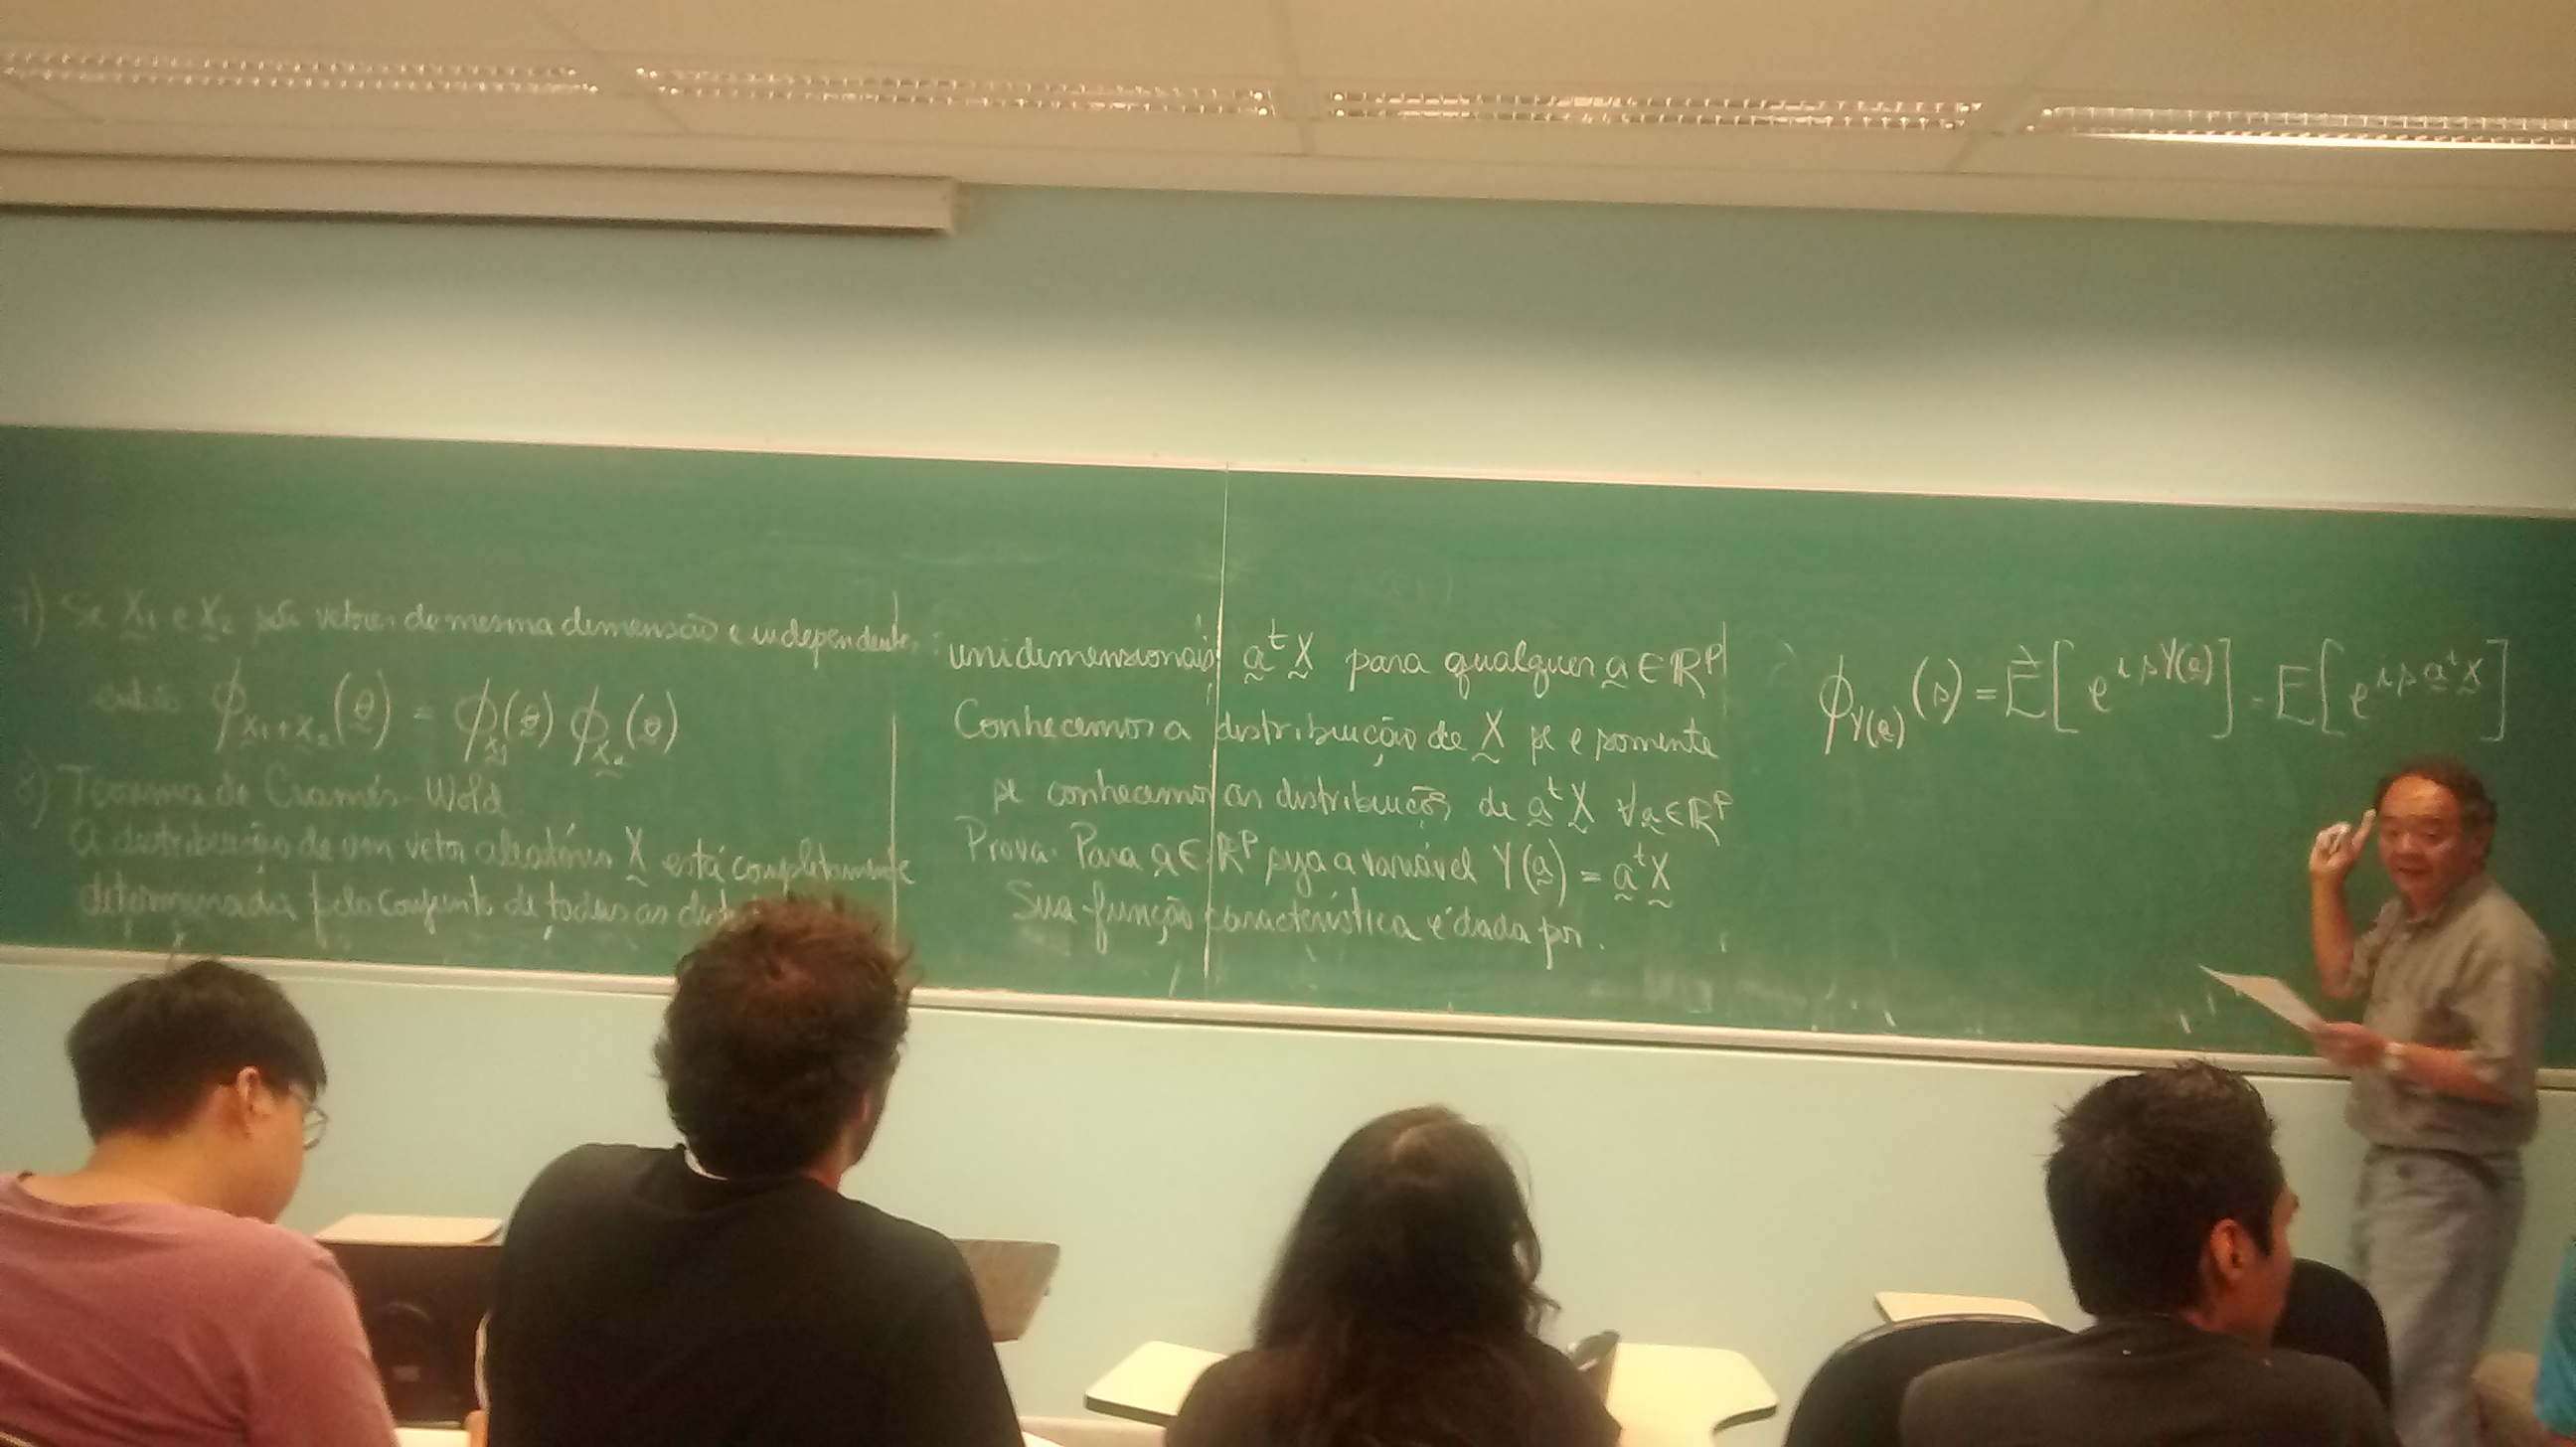 7) Se X̰₁ e X̰₂ são vetores de mesma dimensão e independentes
então ϕ_{X̰₁+X̰₂}(θ̰) = ϕ_{X̰₁}(θ̰) ϕ_{X̰₂}(θ̰)
8) Teorema de Cramér-Wold
A distribuição de um vetor aleatório X̰ está completamente
determinada pelo conjunto de todas as
unidimensionais a̰ᵗX̰ para qualquer a̰ ∈ ℝᵖ
Conhecemos a distribuição de X̰ se e somente
se conhecemos as distribuições de a̰ᵗX̰ ∀a̰ ∈ ℝᵖ
Prova. Para a̰ ∈ ℝᵖ seja a variável Y(a̰) = a̰ᵗX̰
Sua função característica é dada por.
ϕ_{Y(a̰)}(s) = E[e^{isY(a̰)}] = E[e^{isa̰ᵗX̰}]